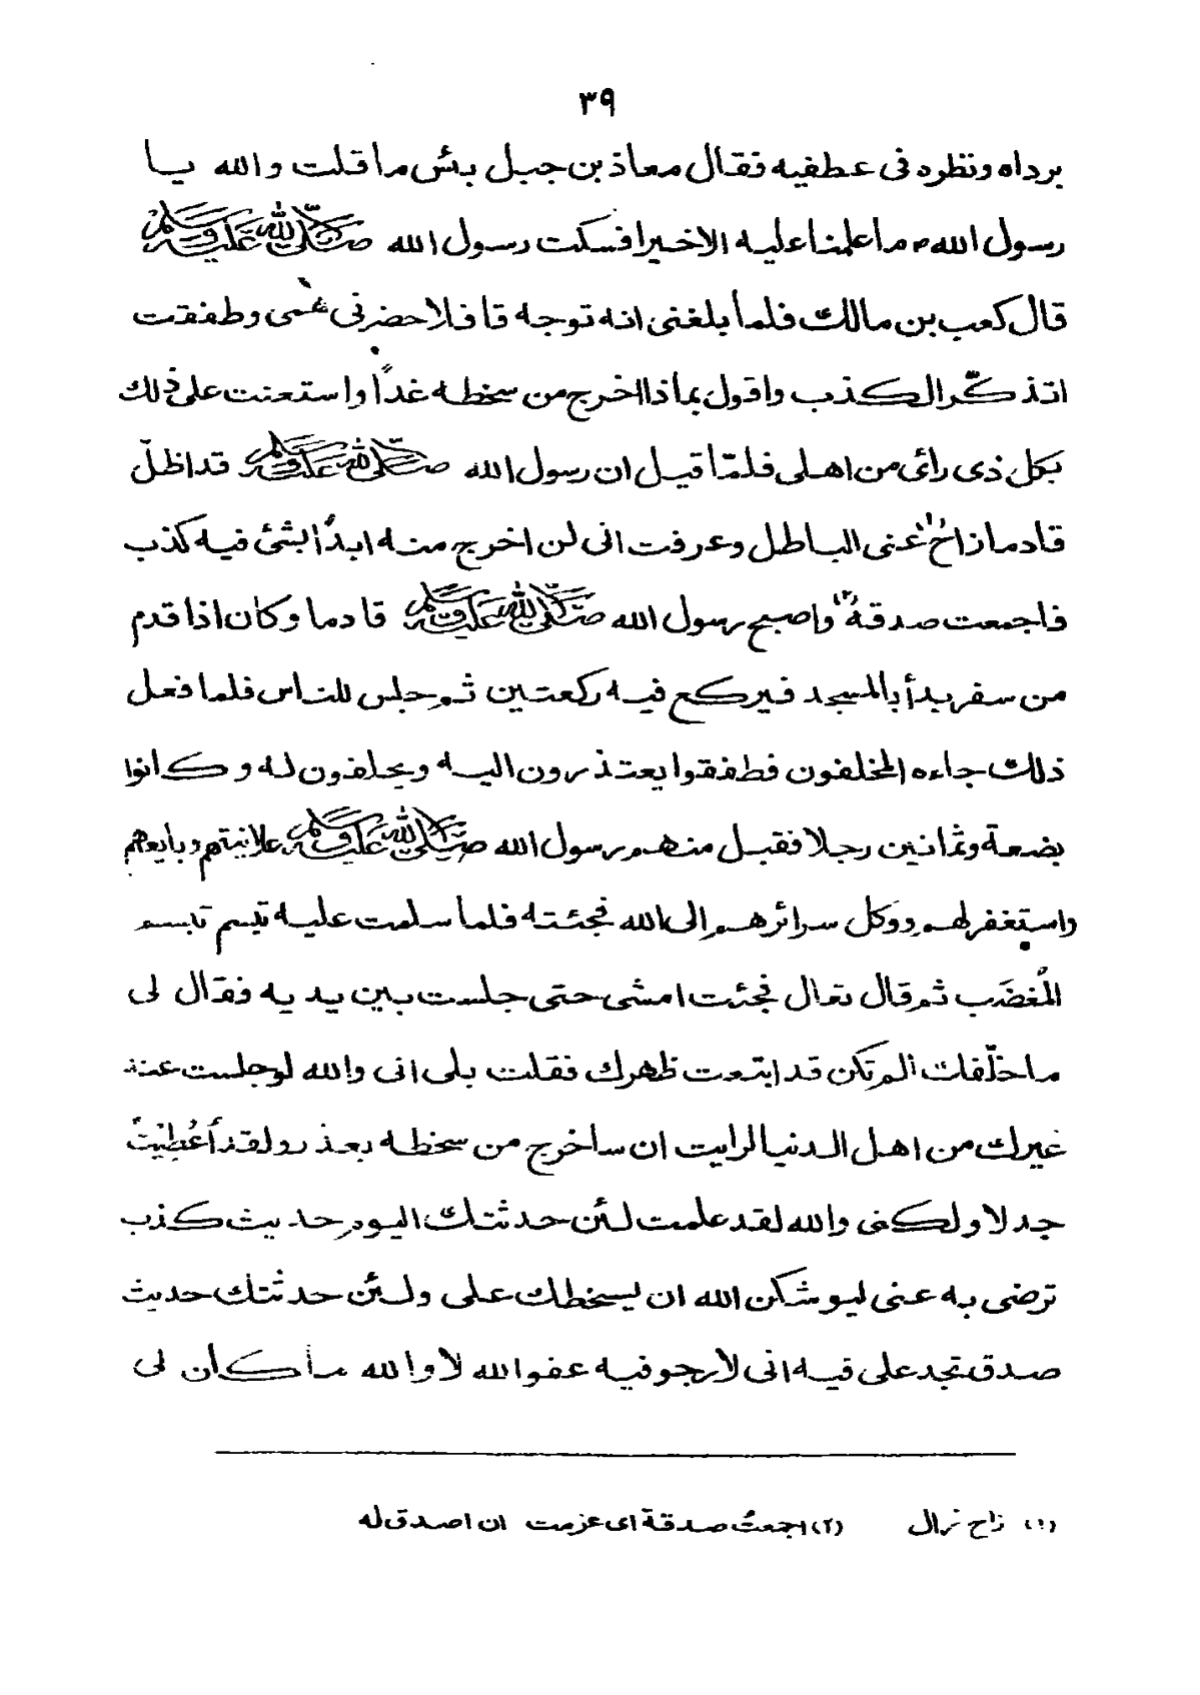 ٣٩
برداه ونظره فى عطفيه فقال معاذ بن جبل بئس ما قلت والله يا
رسول الله ما علمنا عليه الاخيرا فسكت رسول الله صلى الله عليه وسلم
قال كعب بن مالك فلما بلغنى انه توجه قافلا حضرنى همى وطفقت
اتذكّر الكذب واقول بماذا اخرج من سخطه غدًا واستعنت على ذلك
بكل ذى رائ من اهلى فلمّا قيل ان رسول الله صلى الله عليه وسلم قد اظلّ
قادما زاح(١) عنى الباطل وعرفت انى لن اخرج منه ابدًا بشئ فيه كذب
فاجمعت صدقهٗ(٢) واصبح رسول الله صلى الله عليه وسلم قادما وكان اذا قدم
من سفر بدأ بالمسجد فيركع فيه ركعتين ثم جلس للناس فلما فعل
ذلك جاءه المخلفون فطفقوا يعتذرون اليه ويحلفون له وكانوا
بضعة وثمانين رجلا فقبل منهم رسول الله صلى الله عليه وسلم علانيتهم وبايعهم
واستغفر لهم ووكل سرائرهم الى الله فجئته فلما سلمت عليه تبسم تبسم
المُغضَب ثم قال تعال فجئت امشى حتى جلست بين يديه فقال لى
ما خلّفك الم تكن قد ابتعت ظهرك فقلت بلى انى والله لو جلست عند
غيرك من اهل الدنيا لرايت ان ساخرج من سخطه بعذر ولقد أُعْطِيْتُ
جدلا ولكنى والله لقد علمت لئن حدثتك اليوم حديث كذب
ترضى به عنى ليوشكن الله ان يسخطك على ولئن حدثتك حديث
صدق تجد على فيه انى لارجو فيه عفو الله لا والله ما كان لى
(١) زاح زال (٢) اجمعتُ صدقة اى عزمت ان اصدق له